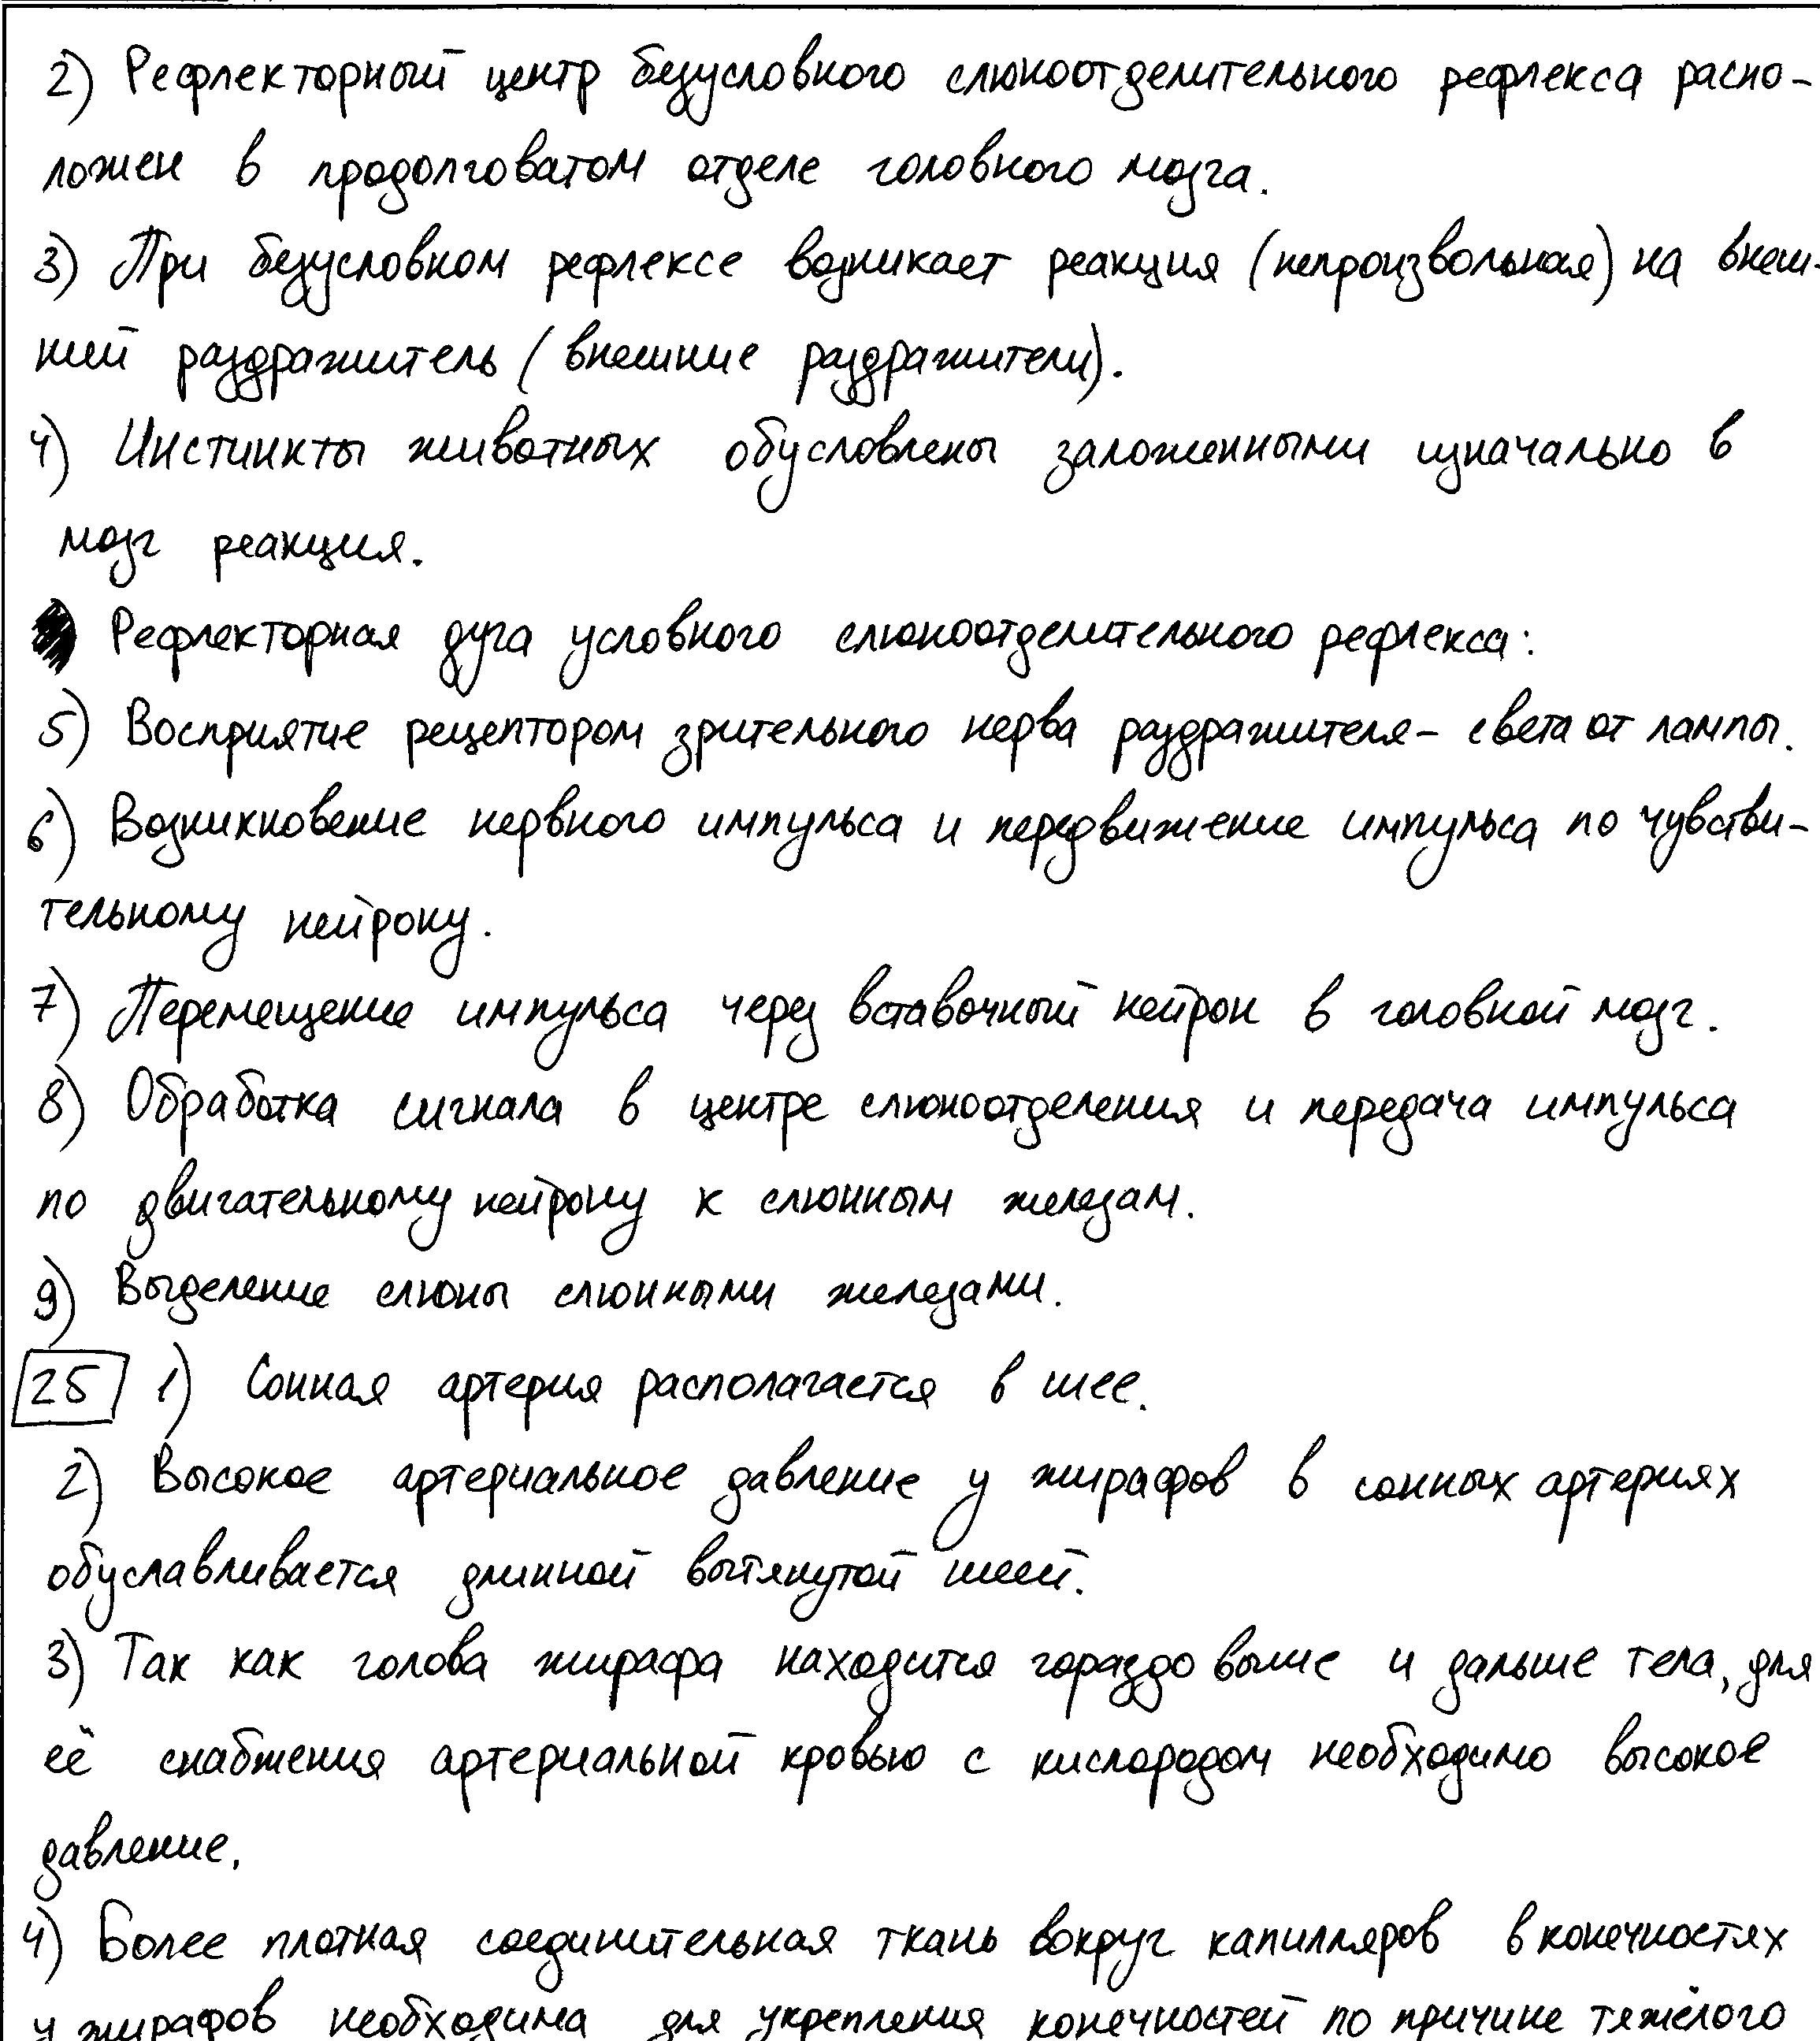 2) Рефлекторный центр безусловного слюноотделительного рефлекса распо-
ложен в продолговатом отделе головного мозга.
3) При безусловном рефлексе возникает реакция (непроизвольная) на внеш-
ний раздражитель (внешние раздражители).
4) Инстинкты животных обусловлены заложенными изначально в
мозг реакция.
Рефлекторная дуга условного слюноотделительного рефлекса:
5) Восприятие рецептором зрительного нерва раздражителя - света от лампы.
6) Возникновение нервного импульса и передвижение импульса по чувстви-
тельному нейрону.
7) Перемещение импульса через вставочный нейрон в головной мозг.
8) Обработка сигнала в центре слюноотделения и передача импульса
по двигательному нейрону к слюнным железам.
9) Выделение слюны слюнными железами.
25 1) Сонная артерия располагается в шее.
2) Высокое артериальное давление у жирафов в сонных артериях
обуславливается длинной вытянутой шеей.
3) Так как голова жирафа находится гораздо выше и дальше тела, для
её снабжения артериальной кровью с кислородом необходимо высокое
давление.
4) Более плотная соединительная ткань вокруг капилляров в конечностях
у жирафов необходима для укрепления конечностей по причине тяжёлого